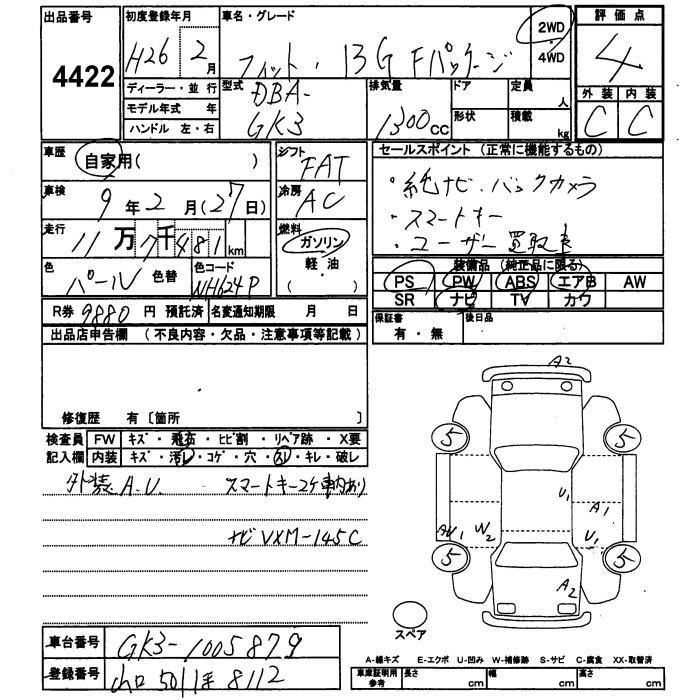 出品番号 初度登録年月 車名・グレード 評価点
4422 H26 2月 フィット・13G Fパッケージ 2WD ・ 4WD 4
ディーラー・並行 型式 排気量 ドア 定員 人 外装 内装
モデル年式 年 DBA- 1300cc 形状 積載 kg C C
ハンドル 左・右 GK3
車歴 自家用( ) シフト FAT セールスポイント (正常に機能するもの)
車検 9年2月(27日) 冷房 AC ・純ナビ・バックカメラ
走行 11万7千481km 燃料 ガソリン・軽油 ・スマートキー
・ユーザー買取車
色 パール 色替 色コード NH624P 装備品 (純正品に限る)
PS PW ABS エアB AW
SR ナビ TV カワ
R券 9880 円 預託済 名変通知期限 月 日 保証書 有・無 後日品
出品店申告欄 (不良内容・欠品・注意事項等記載)
修復歴 有〔箇所 〕
検査員 FW キズ・飛石・ヒビ割・リペア跡・X要
記入欄 内装 キズ・汚レ・コゲ・穴・スレ・キレ・破レ
外装A.U. スマートキー2ケ車内あり
ナビVXM-145C
A2
5 5
U1 A1
W2 U1
5 5
A2
スペア
車台番号 GK3-1005879
登録番号 山口 501 8112
A-線キズ E-エクボ U-凹み W-補修跡 S-サビ C-腐食 XX-取替済
車庫証明用参考 長さ cm 幅 cm 高さ cm